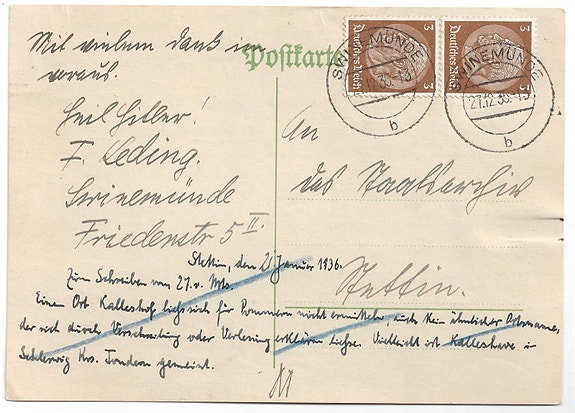 Mit vielem Dank im
voraus.
Heil Hitler!
F. Leding.
Swinemünde
Friedenstr 5 II.
Postkarte
3
Deutsches Reich
3
Deutsches Reich
SWINEMÜNDE
b
SWINEMÜNDE
27.12.35.-13
b
An
das Staatsarchiv
Stettin.
Stettin, den 2. Januar 1936.
Zum Schreiben vom 27. v. Mts.
Einen Ort Kalleshof liess sich für Pommern nicht ermitteln, auch kein ähnlicher Ortsname,
der sich durch Verschreibung oder Verlesung erklären liesse. Vielleicht ist Kalleshave in
Schleswig Krs. Tondern gemeint.